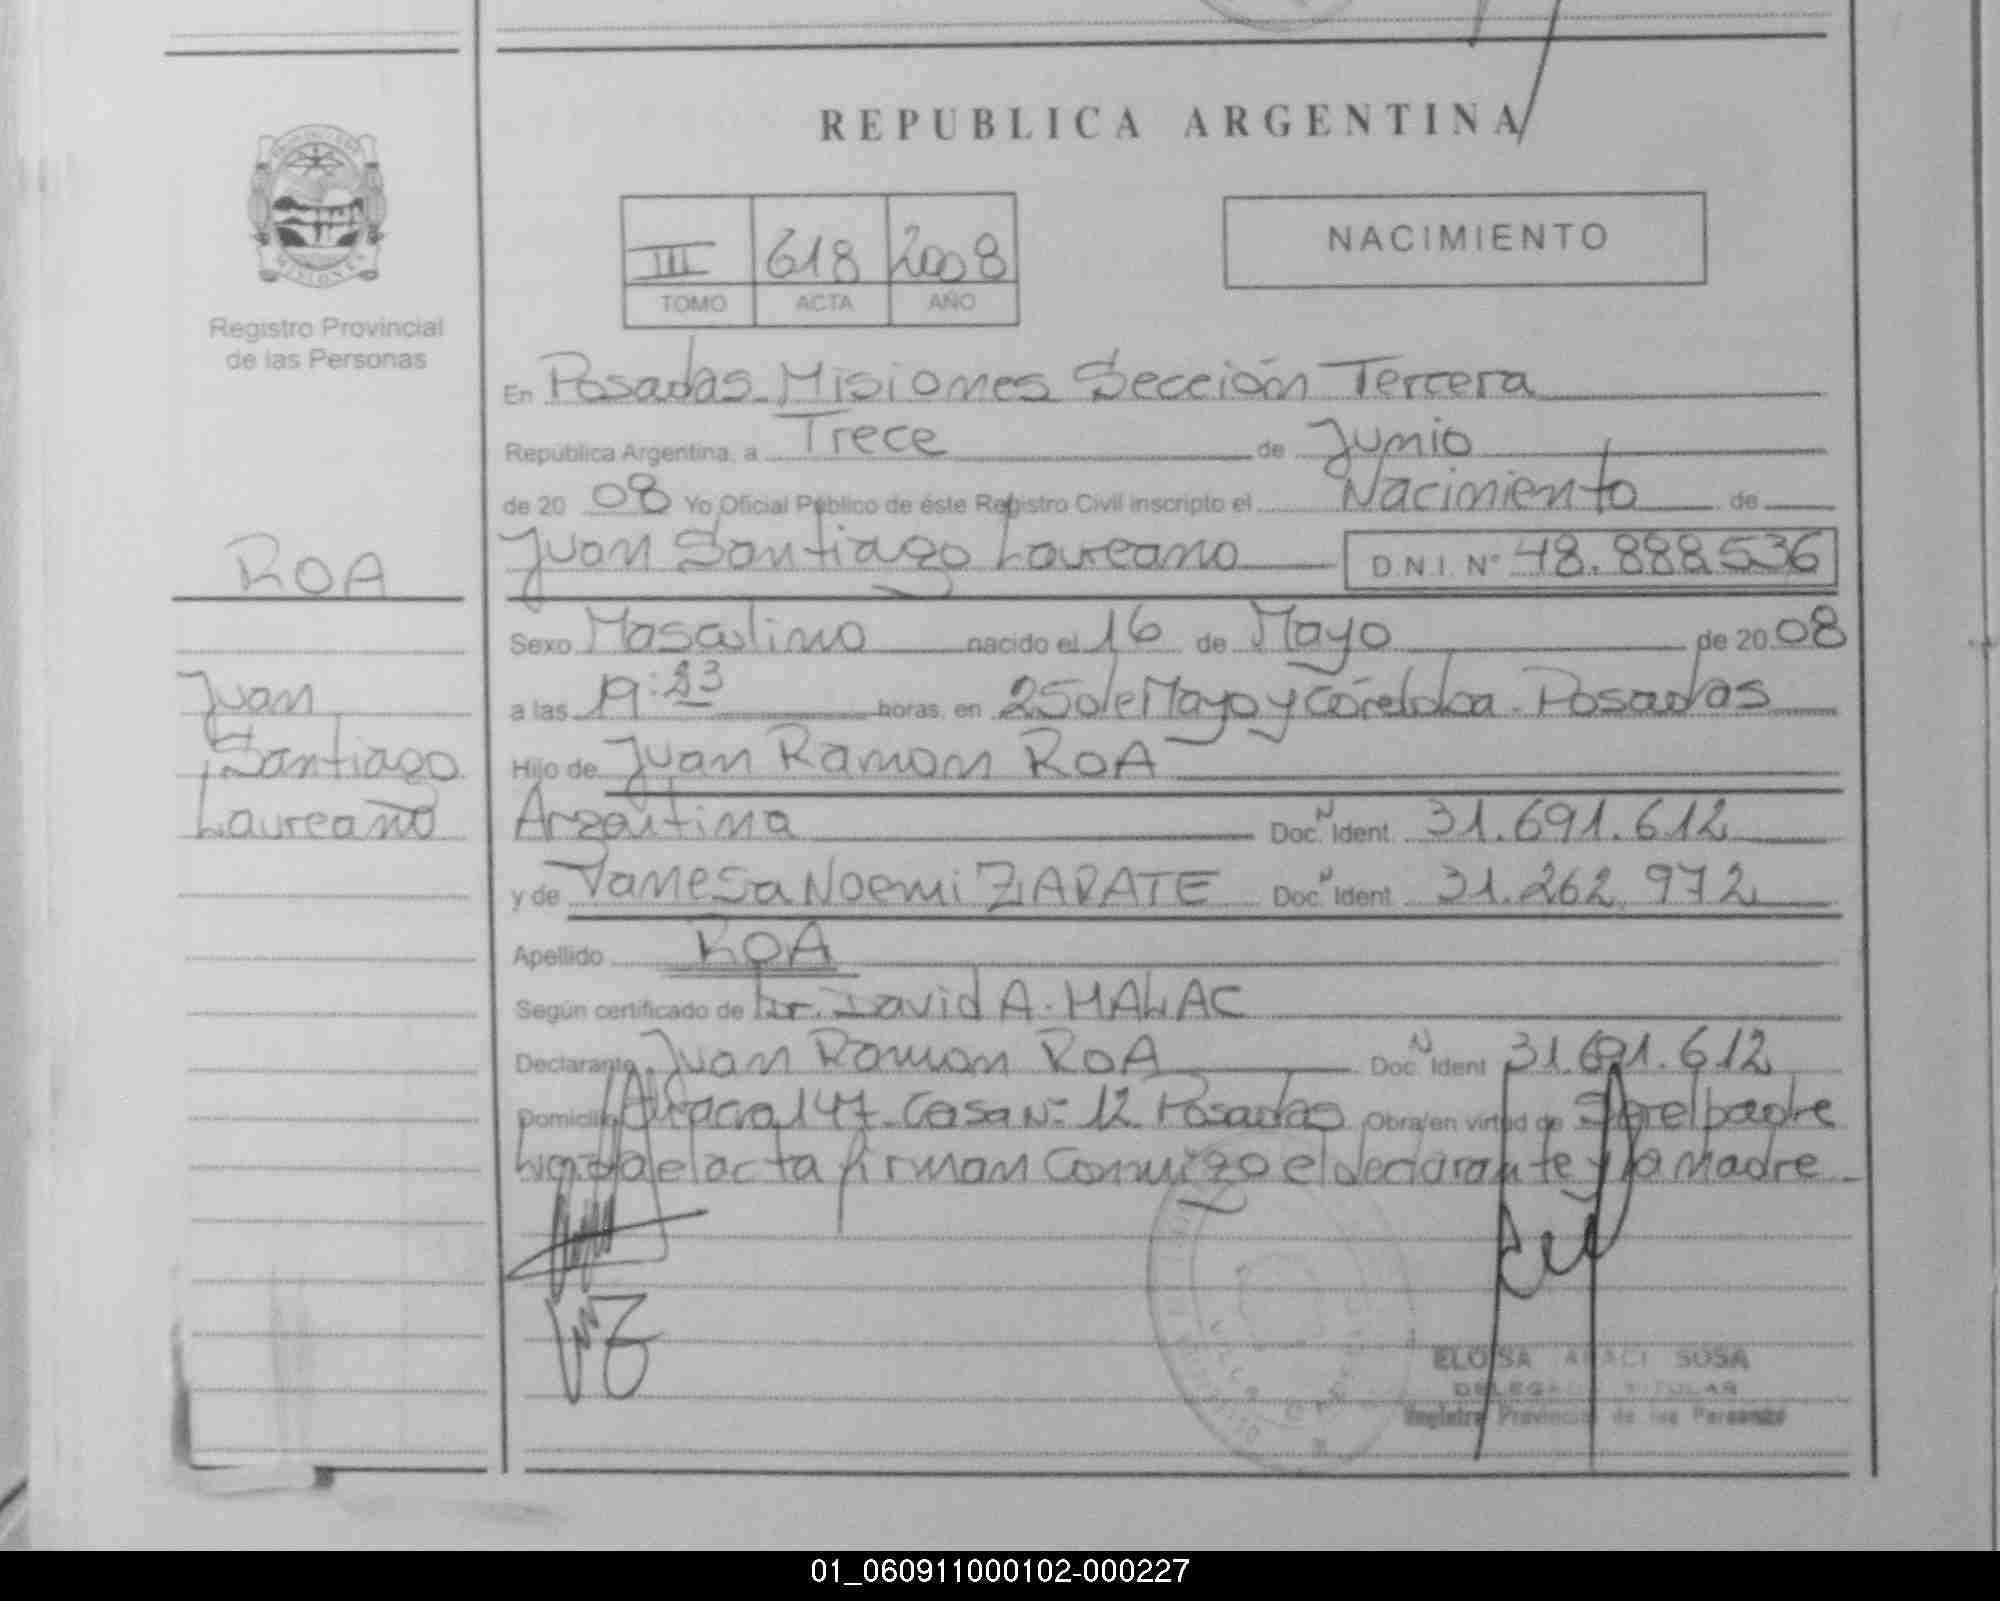 REPUBLICA ARGENTINA
NACIMIENTO
III 618 2008
TOMO ACTA AÑO
MISIONES
Registro Provincial
de las Personas
En Posadas Misiones Sección Tercera
República Argentina, a Trece de Junio
de 20 08 Yo Oficial Público de éste Registro Civil inscripto el Nacimiento de
Juan Santiago Laureano D.N.I. Nº 48.888.536
ROA
Sexo Masculino nacido el 16 de Mayo de 20 08
Juan
Santiago
Laureano
a las 19:23 horas, en 25 de Mayo y Córdoba - Posadas
Hijo de Juan Ramon ROA
Argentina Doc. N Ident. 31.691.612
y de Vanesa Noemi ZARATE Doc. N Ident. 31.262.972
Apellido ROA
Según certificado de Dr. David A. MALAC
Declarante Juan Ramon ROA Doc. N Ident 31.691.612
Domicilio 147 - Casa Nº 12 Posadas Obra/en virtud de Ser el padre
Leida el acta firman Conmigo el declarante y la madre
ELOISA ARACI SOSA
DELEGADA TITULAR
Registro Provincial de las Personas
01_060911000102-000227